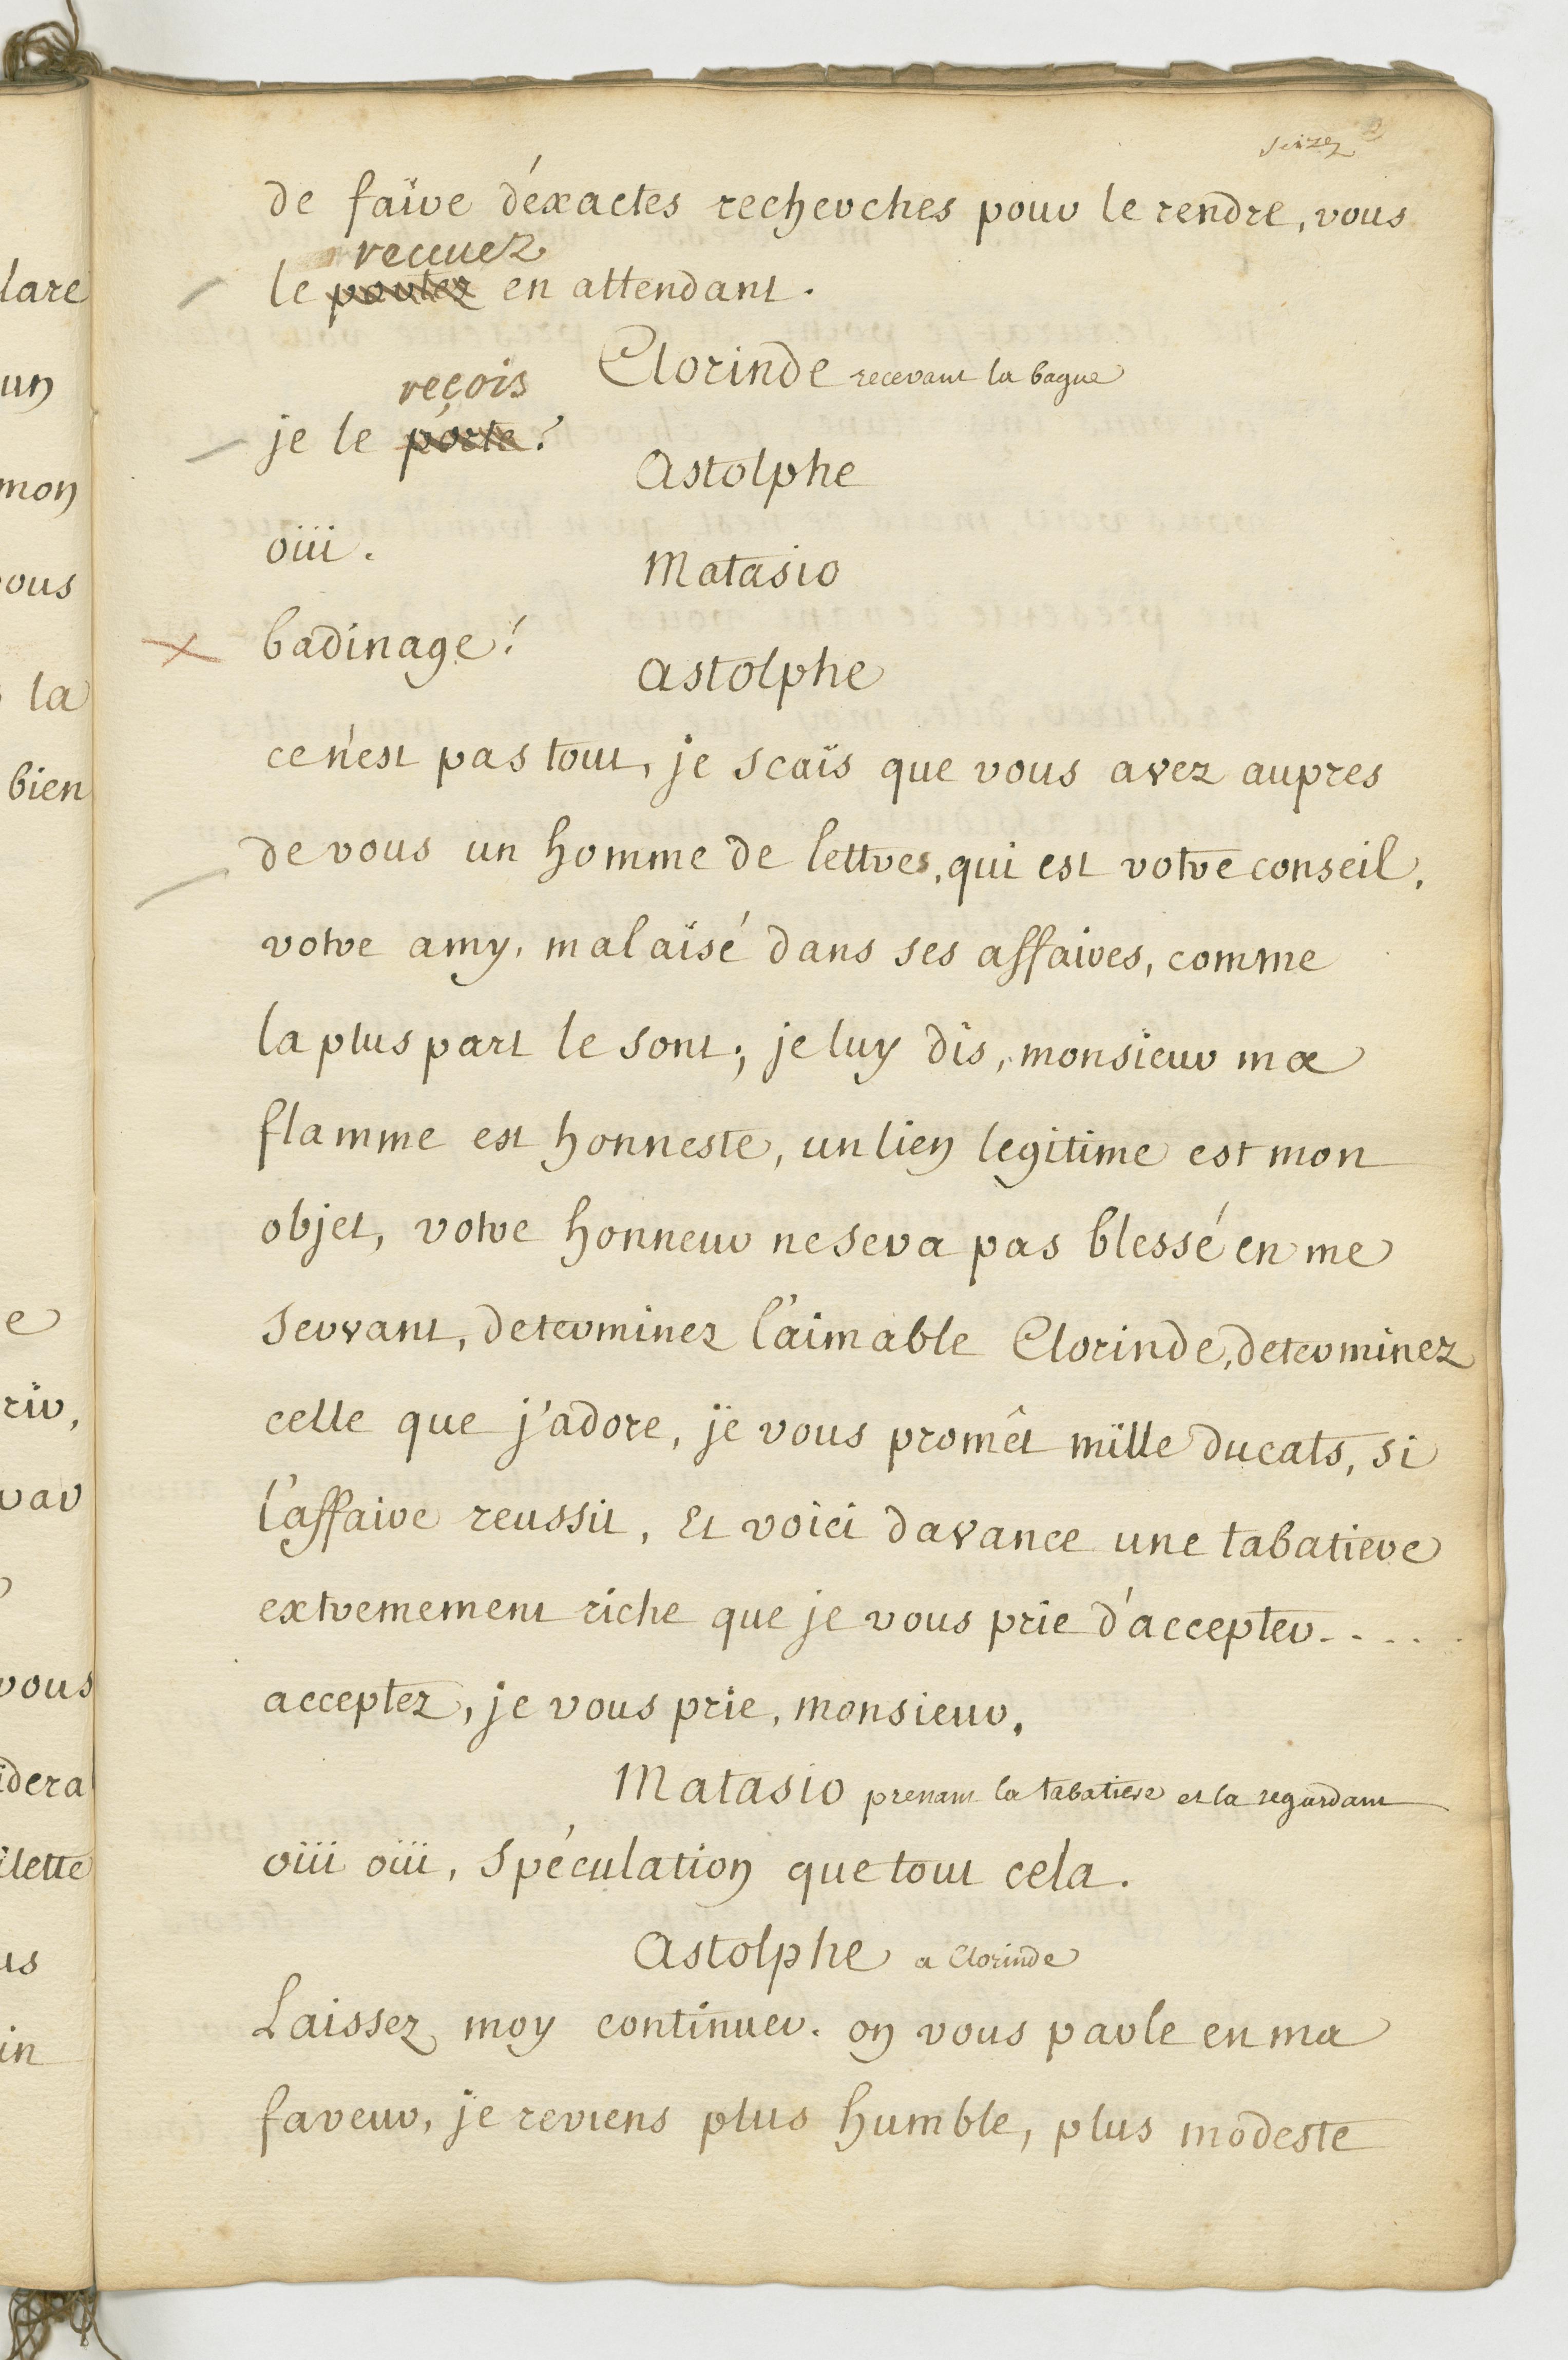 seize
de faïre d'éxactes recherches pour le rendre, vous
recevez
le portez en attendant.
Clorinde recevant la bague
reçois
je le porte?
Astolphe
oüi.
Matasio
badinage!
Astolphe
ce n'est pas tout, je scaïs que vous avez aupres
de vous un homme de lettres, qui est votre conseil,
votre amy, mal aisé dans ses affaires, comme
la plus part le sont; je luy dis, monsieur ma
flamme est honneste, un lien legitime est mon
objet, votre honneur ne sera pas blessé en me
servant, determinez l'aimable Clorinde, determinez
celle que j'adore, je vous promêt mille ducats, si
l'affaire reussit, Et voici davance une tabatiere
extremement riche que je vous prie d'accepter.....
acceptez, je vous prie, monsieur.
Matasio prenant la tabatiere et la regardant
oüi oüi, Spéculation que tout cela.
Astolphe a Clorinde
Laissez moy continuer. on vous parle en ma
faveur, je reviens plus humble, plus modeste
lare
un
mon
vous
la
bien
e
rir,
var
vous
idera
ilette
us
in